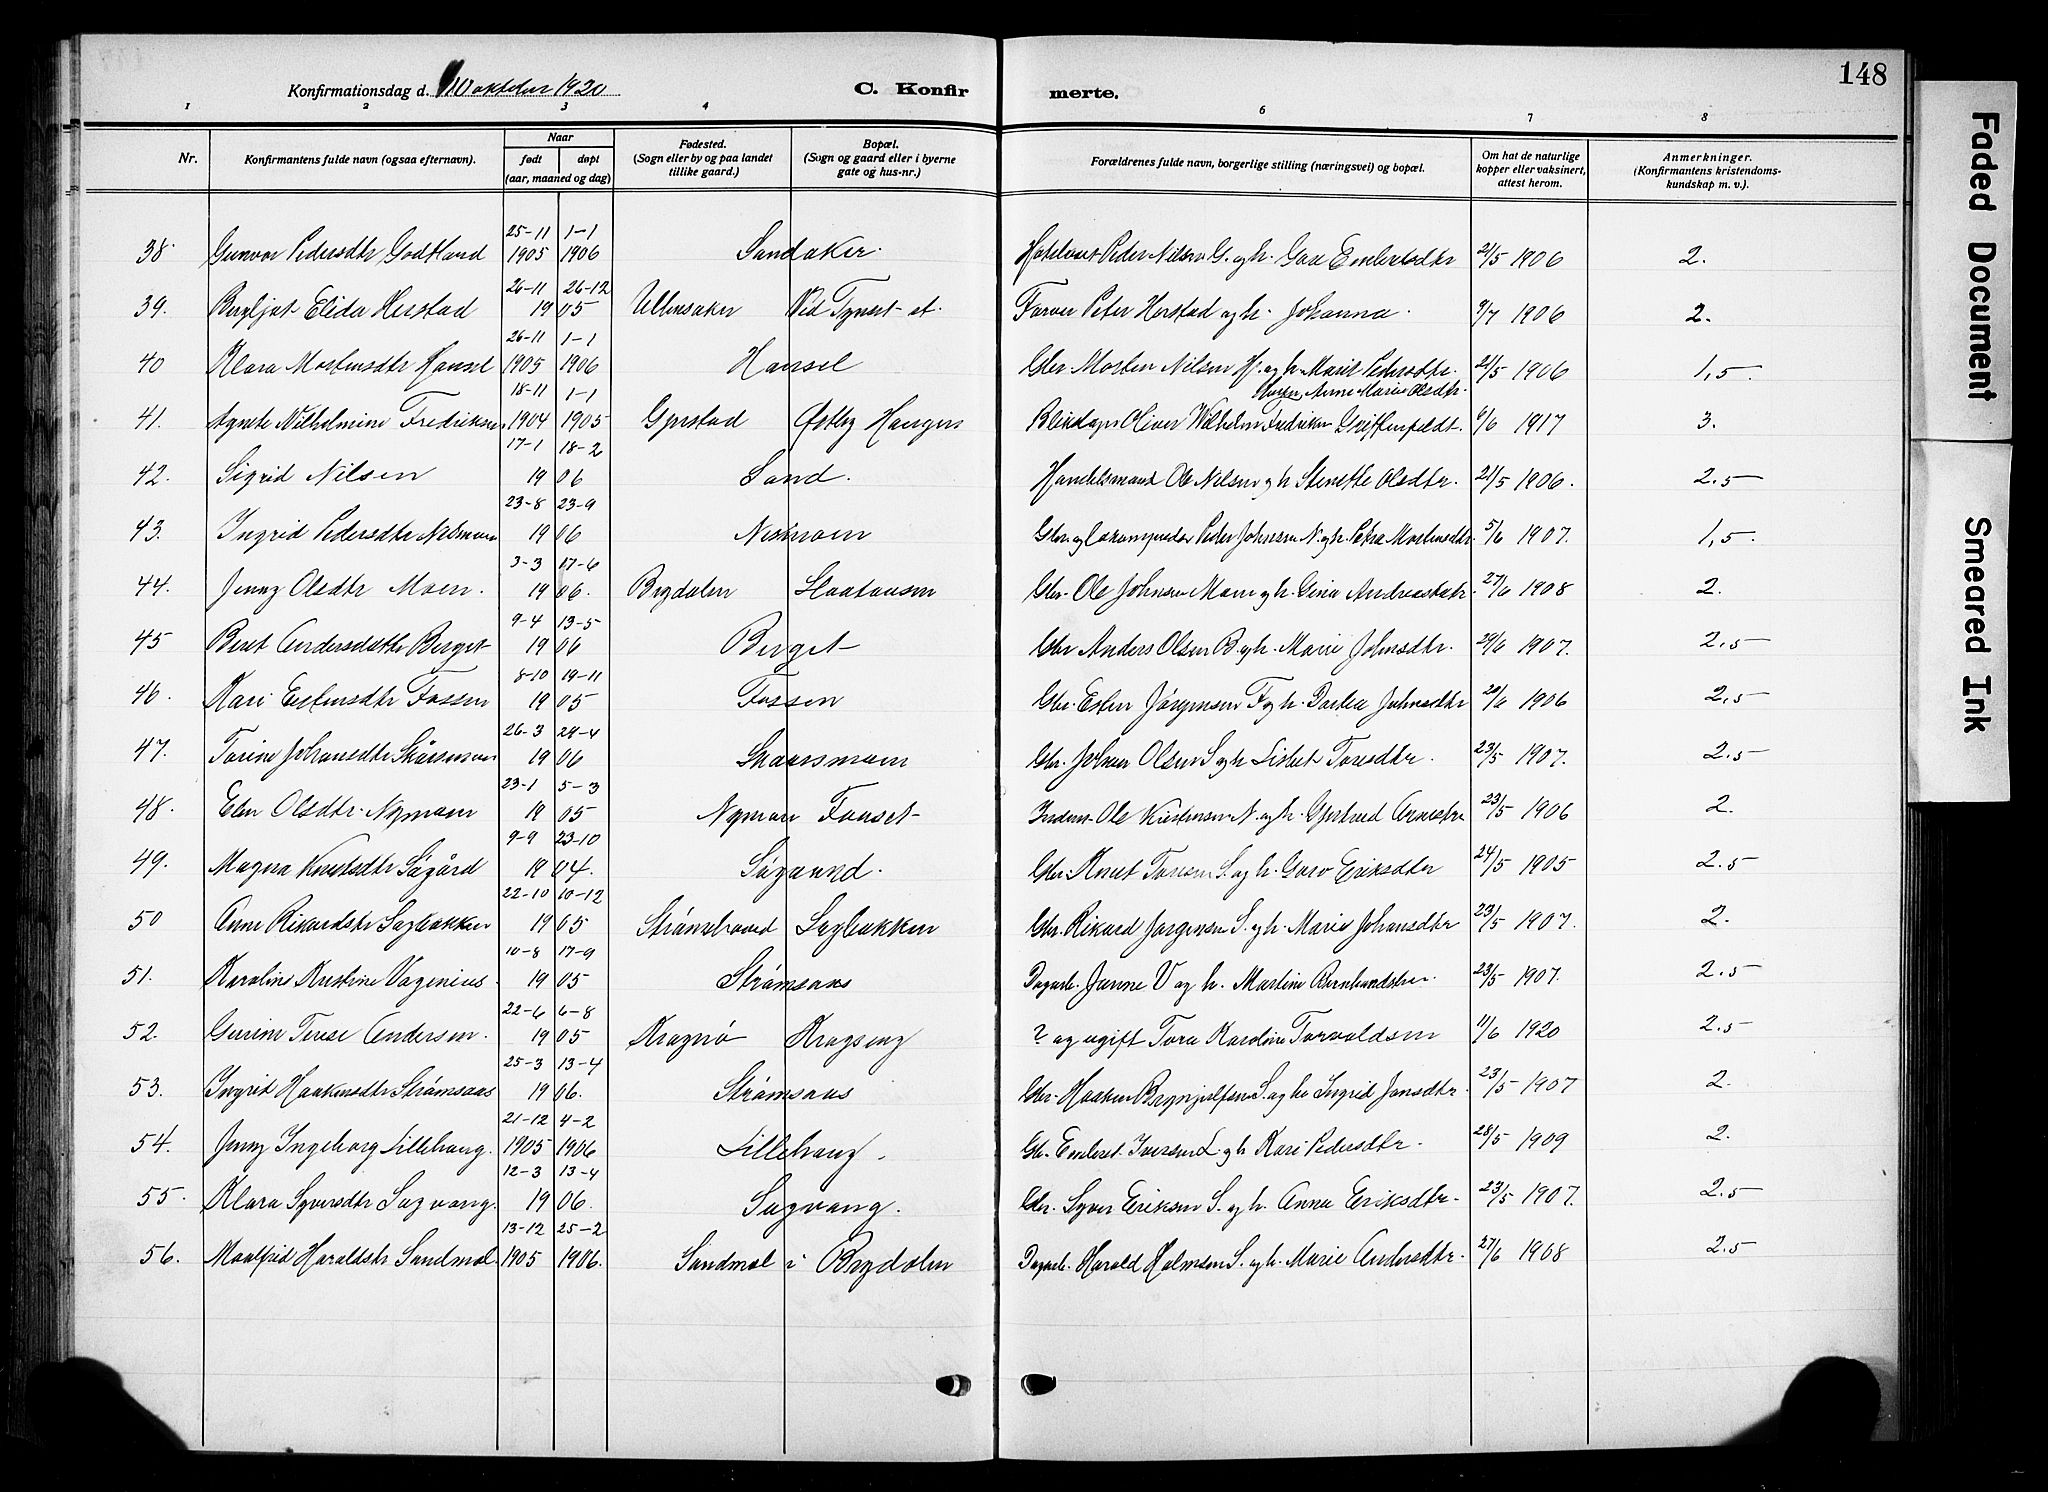 148
Konfirmationsdag d. 10 oktober 1920
C. Konfirmerte.
1 2 3 4 6 7 8
Nr. Konfirmantens fulde navn (ogsaa efternavn). Naar født døpt (aar, maaned og dag) Fødested. (Sogn eller by og paa landet tillike gaard.) Bopæl. (Sogn og gaard eller i byerne gate og hus-nr.) Forældrenes fulde navn, borgerlige stilling (næringsvei) og bopæl. Om hat de naturlige kopper eller vaksinert, attest herom. Anmerkninger. (Konfirmantens kristendomskundskap m. v.).
38. Gunvor Pedersdtr Godtland 25-11 1905 1-1 1906 Sandaker. Peder Nilsen G. og h. Goro Embretsdtr 21/5 1906 2.
39. Bergljot Elida Herstad 26-11 26-12 1905 Ullensaker Ved Tynset st. Farver Peter Herstad og h. Johanna. 9/7 1906 2.
40 Klara Mortensdtr Hansel 26-11 1905 1-1 1906 Hansel Gbr. Morten Nilsen H. og h. Marit Pedersdtr. 21/5 1906 1,5.
41. Agnete Vilhelmine Fredriksen 18-11 1904 1-1 1905 Gjerstad Østby Haugen Oliver Wilhelm Fredriksen Griffenfeldt. Anne Marie Olsdtr. 6/6 1917 3.
42. Sigrid Nilsen 17-1 18-2 1906 Sand. Handelsmand Ole Nilsen og h. Stenette Olsdtr. 21/5 1906. 2.5
43. Ingrid Pedersdtr Nesmoen 23-8 23-9 1906 Nesmoen Gbr. og Peder Johnsen N. og h. Petra Mortensdtr. 5/6 1907. 1,5.
44. Jenny Olsdtr Moen. 3-3 17-6 1906. Brydalen Haataasen Gbr. Ole Johnsen Moen og h. Gina Andreasdtr. 27/6 1908 2.
45 Beret Andersdatter Berget 9-4 13-5 1906 Berget Gbr Anders Olsen B. og h. Marie Johnsdtr. 29/6 1907. 2,5
46. Kari Estensdtr Fossen 8-10 19-11 1905 Fossen Gbr. Esten Jørgensen F. og h. Dortea Johnsdtr 20/6 1906 2,5
47. Torine Johansdtr Skårsmoen 26-3 29-4 1906 Skaarsmoen Gbr. Johan Olsen S. og h. Lisbet Toresdtr. 23/5 1907. 2.5
48. Elen Olsdtr. Nymoen 23-1 5-3 1905 Nymoen Fauset Inderst Ole Kristensen N. og h. Gjertrud Arnesdtr 23/5 1906 2.
49. Magna Knutsdtr Sågård 9-9 23-10 1904. Sågaard. Gbr. Knut Toresen S. og h. Goro Eriksdtr 24/5 1905 2.5
50 Anne Rikardsdtr Sagbakken 22-10 10-12 1905 Strømshoved Sagbakken Gbr. Rikard Jørgensen S. og h. Marie Johansdtr 23/5 1907. 2.
51. Karoline Kristine Vagenius. 10-8 17-9 1905 Strømsaas Dagarb. Janne V og h. Martine Bernhardsdtr. 23/5 1907. 2.5
52. Gurine Terese Andersen. 22-6 6-8 1905 Kragerø Kragseng ? og ugift Tora Karoline Torvaldsen 11/6 1920 2.5
53. Ingrid Haakensdtr Strømsaas 25-3 13-4 1906. Strømsaas Gbr. Haaken Brynjulfsen S. og h. Ingrid Jonsdtr. 23/5 1907 2.
54. Jenny Ingeborg Lillehaug. 21-12 1905 4-2 1906 Lillehaug. Gbr. Embret Iversen L. og h Kari Pedersdtr. 28/5 1909 2.
55. Klara Syversdtr Sagvang. 12-3 13-4 1906. Sagvang. Gbr. Syver Eriksen S. og h. Anna Eriksdtr. 23/5 1907. 2.5
56. Maalfrid Haraldsdtr Sandmæl. 13-12 1905 25-2 1906. Sandmæl i Brydalen Dagarb. Harald Holmsen S. og h. Marie Andersdtr. 27/6 1908 2.5
Faded Document
Smeared Ink